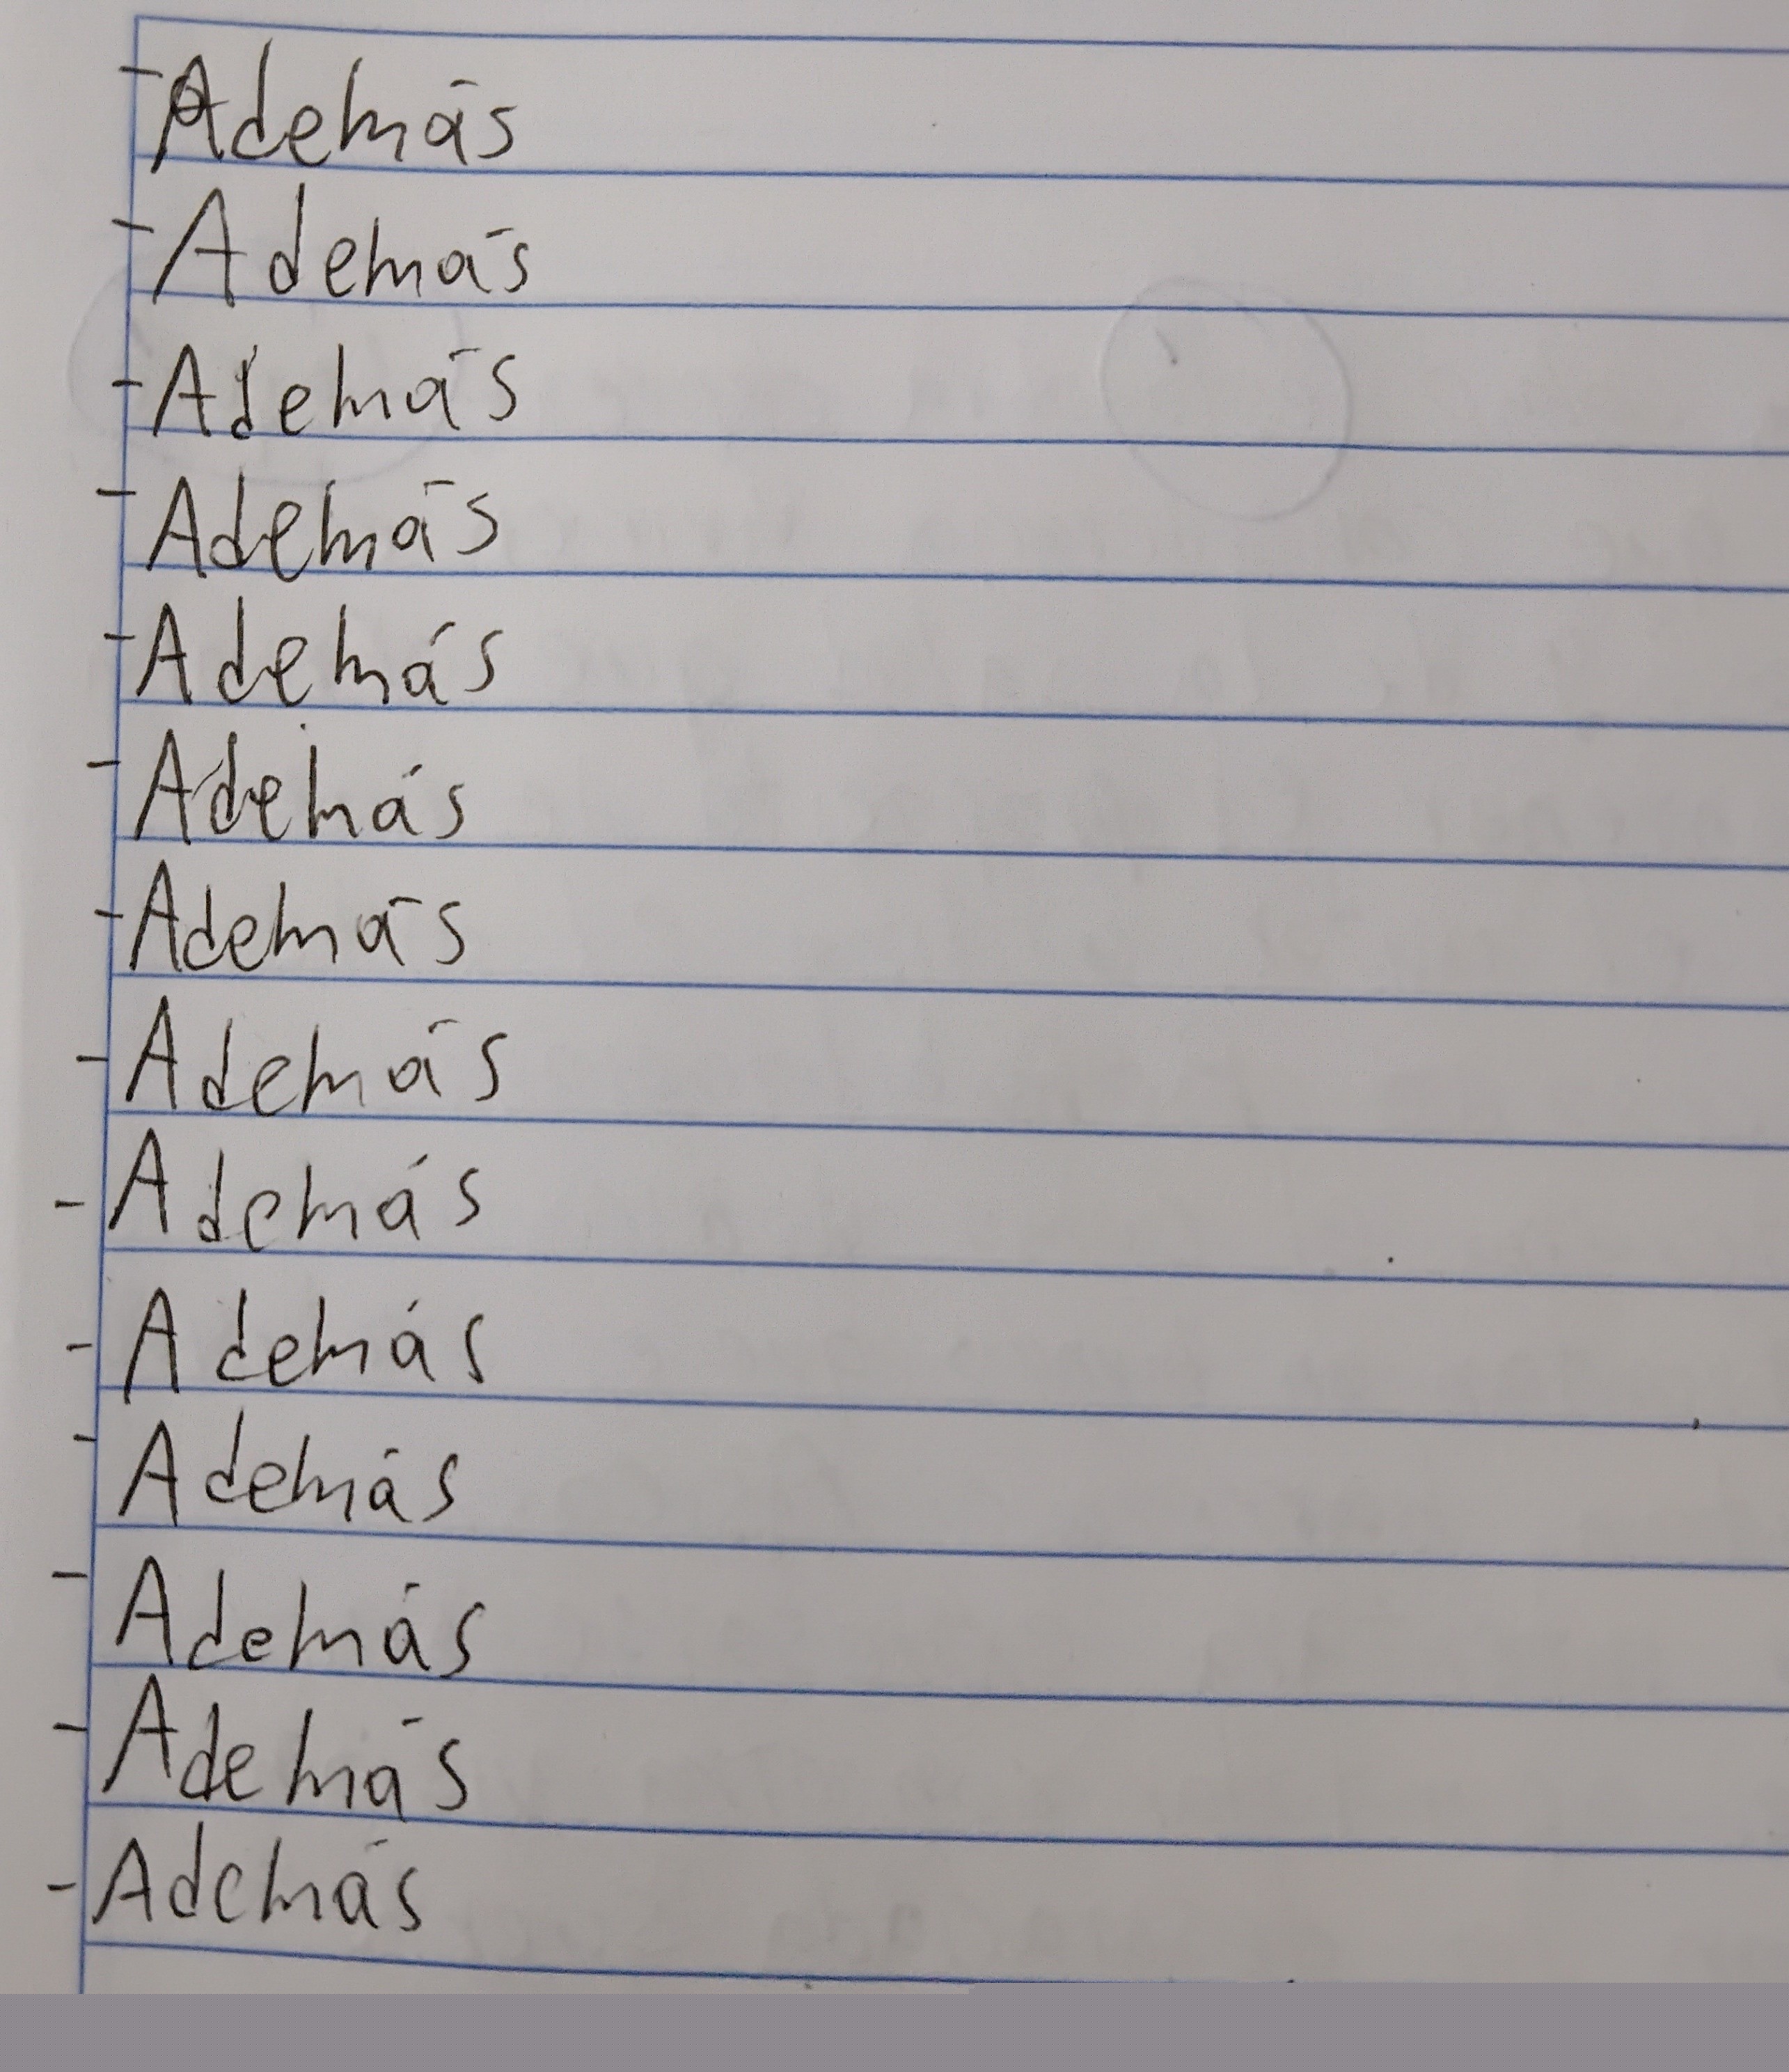 - Además
- Además
- Además
- Además
- Además
- Además
- Además
- Además
- Además
- Además
- Además
- Además
- Además
- Además